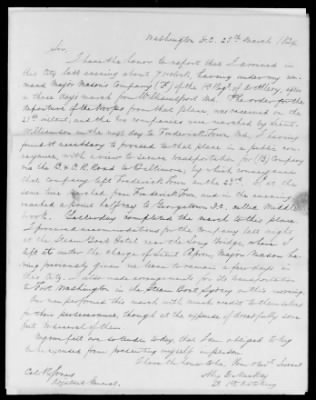 Washington D.C. 27th March 1834
Sir,
I have the honor to report that I arrived in
this City last evening about 7 o'clock, having under my com-
mand Major Mason's Company (F) of the 1st Regt of Artillery, after
a three days march from Williamsport Md. The order for the
departure of the troops from that place was received on the
21st instant, and the two companies were marched by Lieut.
Williamson on the next day to Fredericktown Md. I having
found it necessary to proceed to that place in a public con-
veyance, with a view to secure transportation for (B) Company
via the B. & O. R. Road to Baltimore, by which conveyance
that Company left Fredericktown on the 25th I at the
same time marched from Fredericktown and in the evening
reached a point half way to Georgetown D.C. called Middle
brook. Yesterday completed the march to this place
I procured accommodations for the Company last night
at the Steam Boat Hotel near the Long Bridge, where I
left it under the charge of Lieut. Major Mason hav-
ing previously given me leave to remain a few days in
this city. I also made arrangements for its transportation
to Fort Washington in the Steam Boat Sydney on this morning.
Our men performed this march with much credit to themselves
for their perseverance, though at the expense of dreadfully sore
feet to several of them.
My own feet are so tender today, that I am obliged to beg
to be excused from presenting myself in person
I have the honor to be, Your obdt. Servant
Col. R. Jones
Adjutant General.
Lt. 1st Artillery